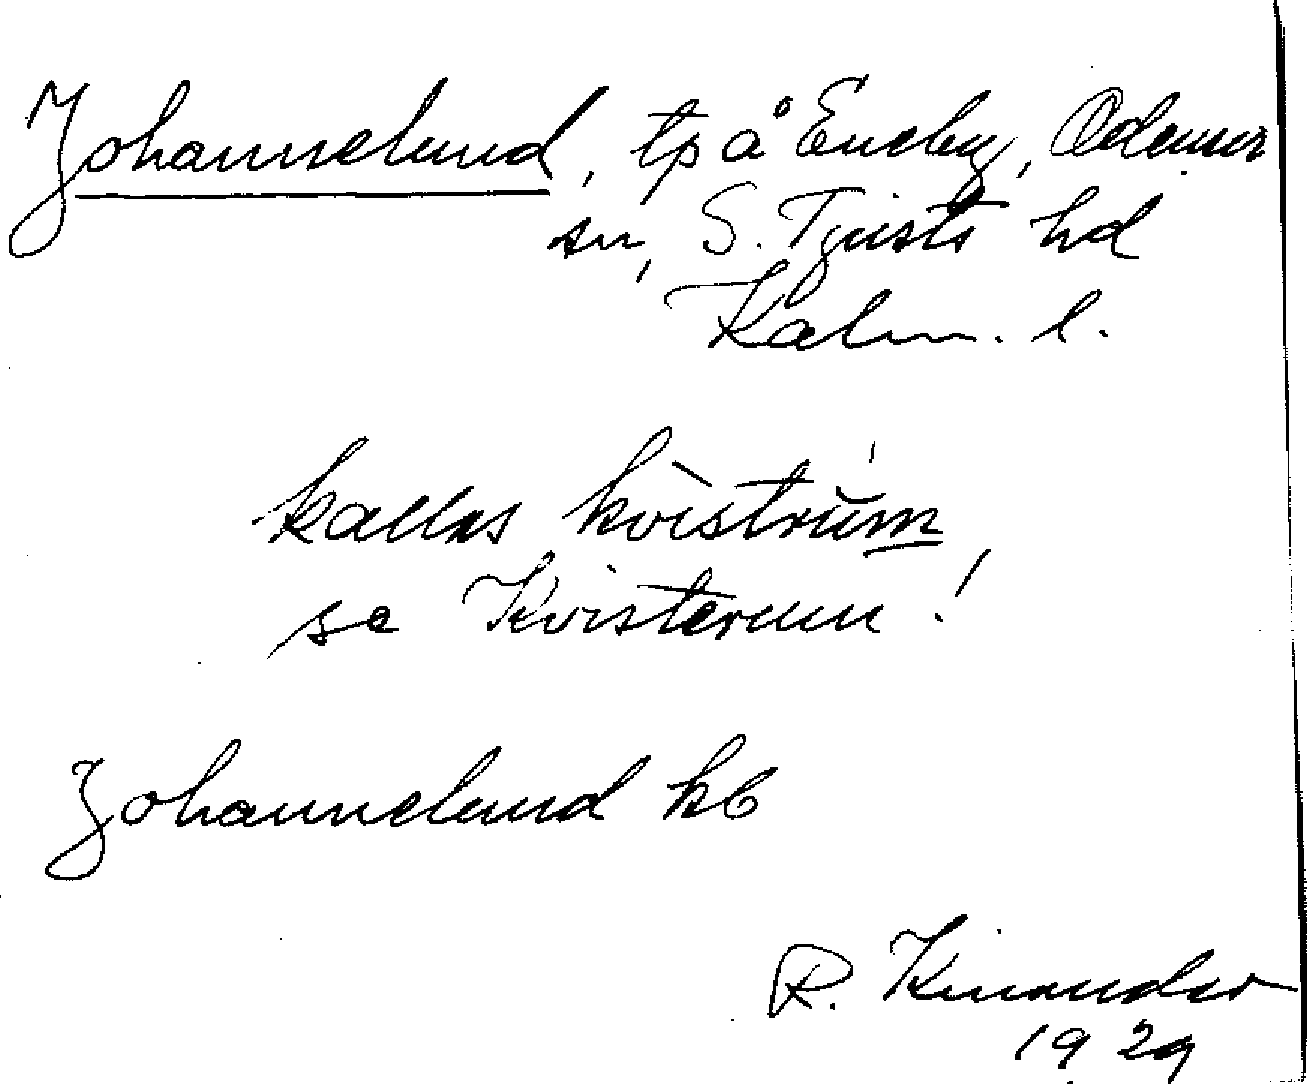 Johannelund, tp å Eneby, Odensv
sn, S. Tjusts hd
Kalm. l.
kallas kvìstrúm
se Kvisterum!
Johannelund kb
R. Kinander
1929